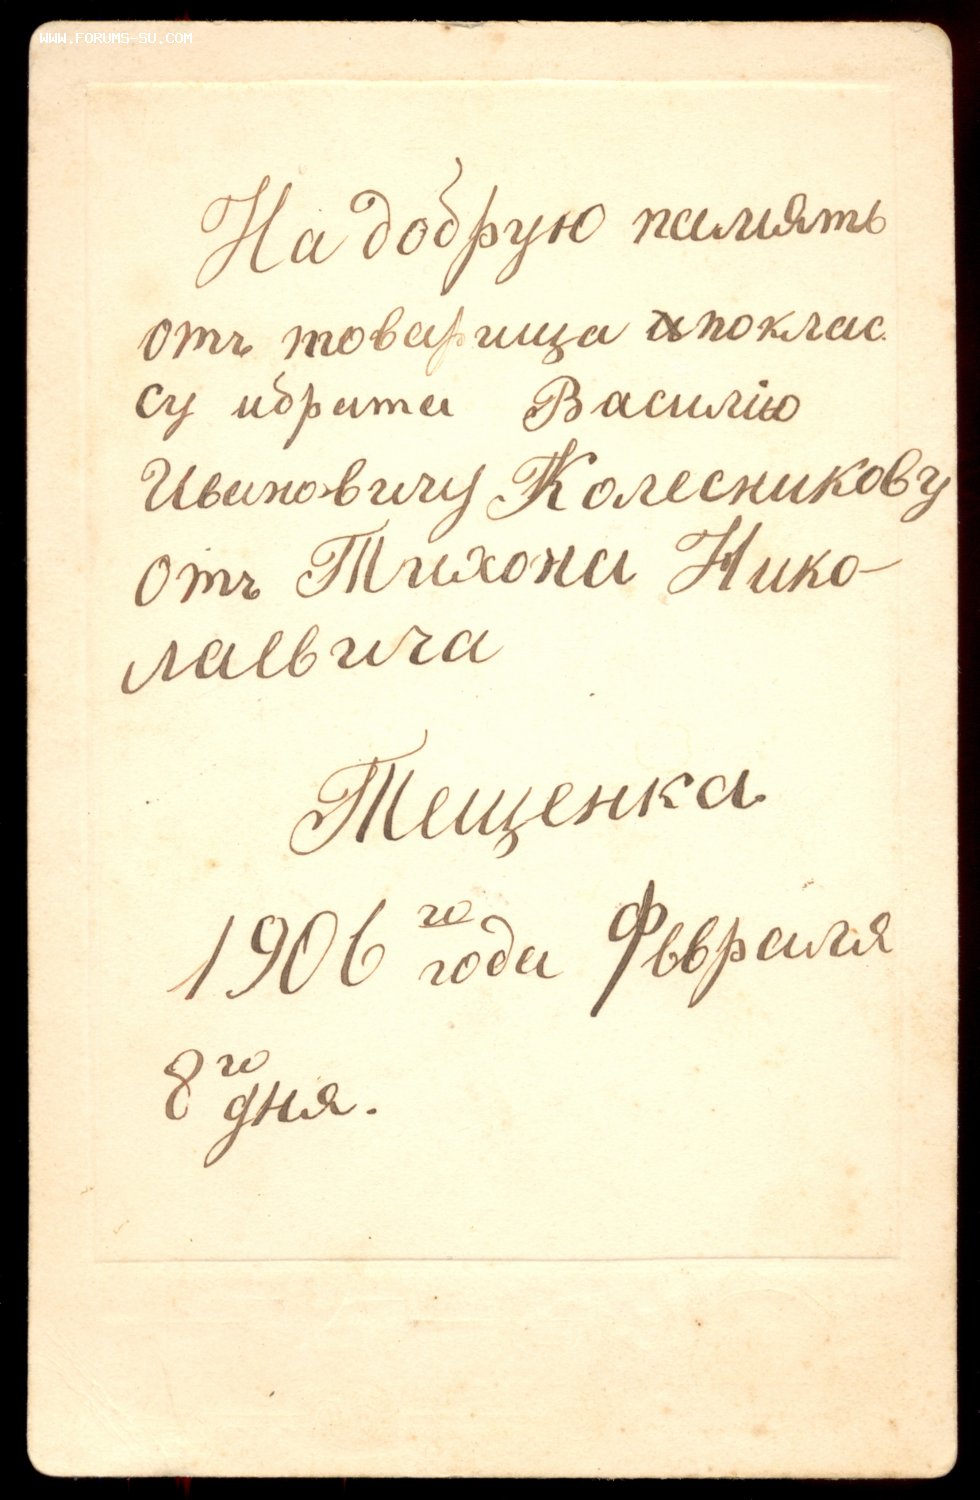 WWW.FORUMS-SU.COM
На добрую память
отъ товарища ипоклас
су ибрата Василію
Ивановичу Колесникову
Отъ Тихона Нико-
лаевича
Тещенка
1906го года Февраля
8го дня.